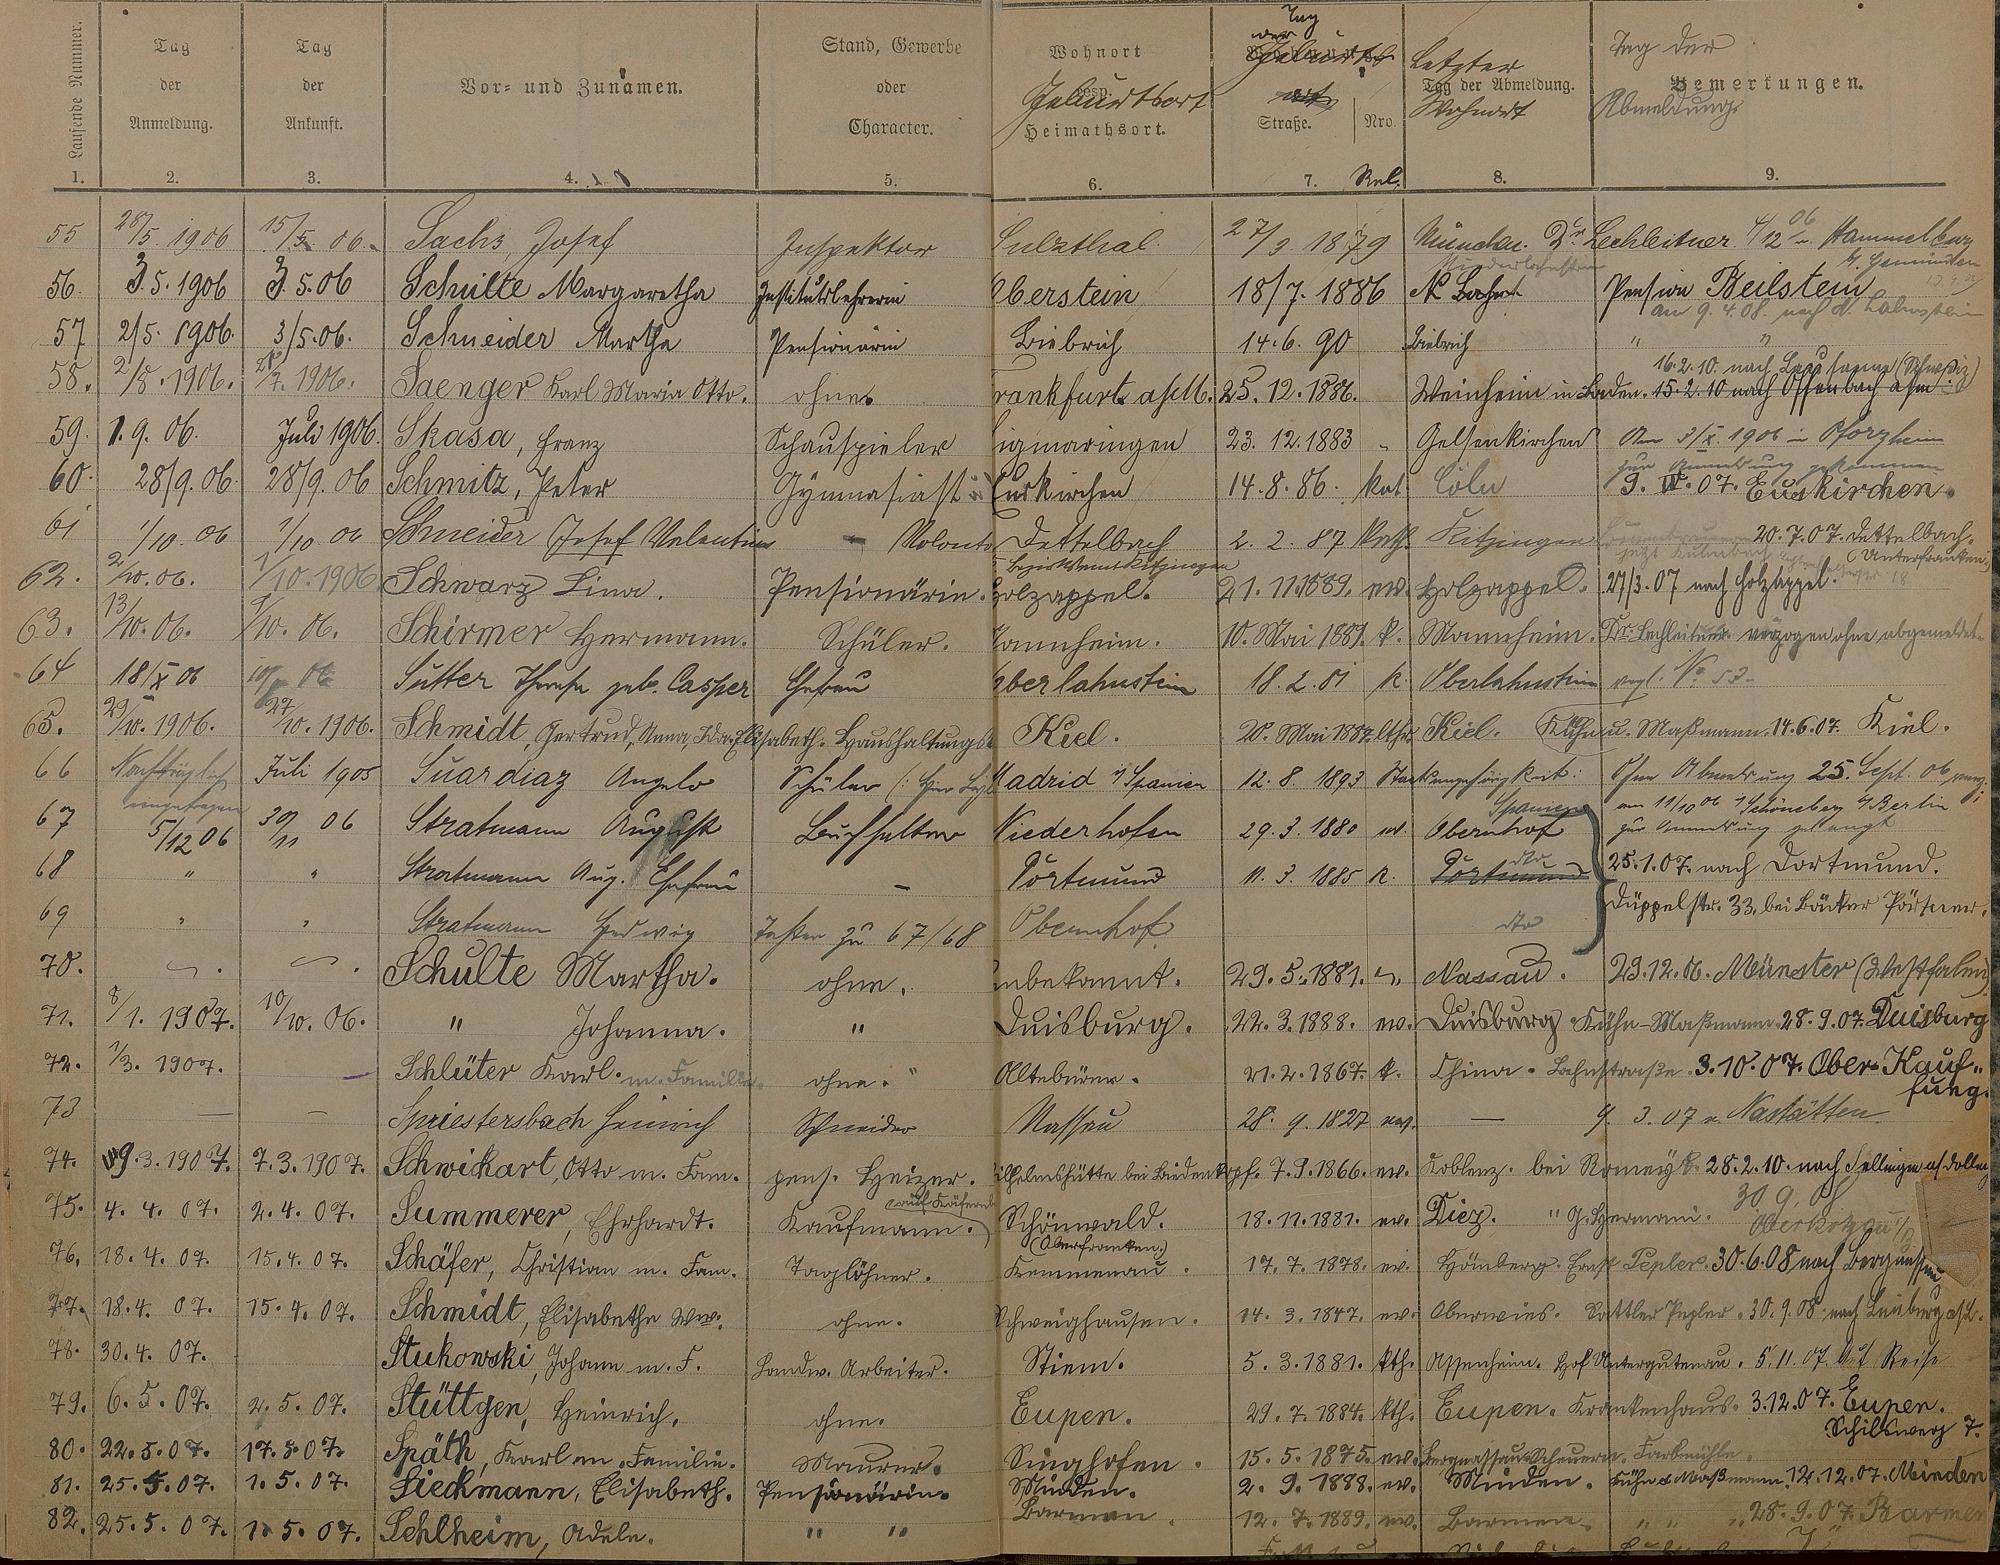 Laufende Nummer. Tag der Anmeldung. Tag der Ankunft. Vor- und Zunamen. Stand, Gewerbe oder Character. Wohnort resp. Heimathsort. Geburtsort Tag der Geburt Straße. Nro. Letzter Tag der Abmeldung. Wohnort Tag der Bemerkungen. Abmeldung
1. 2. 3. 4. 5. 6. 7. Rel. 8. 9.
55 28/5. 1906 15/5 06. Sachs, Josef Inspektor Sulzthal. 27/3 1879 München. Dr. Lechleitner 4/12 06 n. Hammelburg
b. Gemünden
56. 3.5.1906 3.5.06 Schulte Margaretha Institutslehrerin Oberstein 18/7. 1886 Niederlahnstein Pension Beilstein
an 9.4.08. nach N. Lahnstein
57 2/5. 1906. 3/5.06. Schneider Martha Pensionärin Biebrich 14.6.90 Biebrich " "
16.2.10. nach Lausanne (Schweiz)
58. 2/8. 1906. 1906. Saenger Karl Maria Otto. ohne rankfurt a/M. 25.12.1886. Weinheim in Baden. 15.2.10 nach Offenbach a/m.
59. 1.9.06. Juli 1906. Skasa, Franz Schauspieler igmaringen 23.12.1883 Gelsenkirchen Am 3/X. 1906 in Pforzheim
zur Anmeldung gekommen
60. 28/9.06. 28/9.06 Schmitz, Peter Gymnasiast Euskirchen 14.8.86. kat. Cöln 9. IV. 07. Euskirchen.
61 1/10.06 1/10 06 Schneider Josef Valentin Volontär Dettelbach 2.2.87 kath. Kitzingen 20.7.07. Dettelbach.
Bezirksamt Kitzingen jetzt Kulmbach (Unterfranken)
62. 2/10.06. 1/10.1906 Schwarz Lina. Pensionärin. Holzappel. 21.11.1889. ev. Holzappel. 27/3.07 nach Holzappel.
63. 13/10.06. 9/10.06. Schirmer Hermann. Schüler. annheim. 10. Mai 1889. k. Mannheim. Dr. Lechleitner verzogen ohne abgemeldet
64 18/X 06 06 Sutter Therese geb. Casper Ehefrau Oberlahnstein 18.2.81 k. Oberlahnstein vergl. No 53.
65. 29/10.1906. 27/10.1906. Schmidt, Gertrud, Anna, Ida, Elisabeth. Haushaltungs Kiel. 20. Mai 1887. lthr. Kiel. Kühn u. Maßmann. 14.6.07. Kiel.
66 Nachträglich Juli 1905 Suardiaz Angelo Schüler Madrid i/ Spanien 12.8.1893 Staatsangehörigkeit: Ohne Abmeldung 25. Sept. 06 verz.;
eingetragen Spanien am 11/10 06 i/ Schöneberg b/ Berlin
67 5/12 06 30/11 06 Stratmann August Buchhalter Niederhofen 29.3.1880 ev. Obernhof zur Anmeldung gelangt
68 " " Stratmann Aug. Ehefrau – Dortmund 11.3.1885 k. Dortmund dto 25.1.07. nach Dortmund.
Düppelstr. 33, bei Bäcker Pörtner.
69 " " Stratmann Hedwig Tochter zu 67/68 Obernhof dto
70. Schulte Martha. ohne. unbekannt. 29.5.1881. Nassau. 29.12.06. Münster (Westfalen)
71. 8/1. 1907. 10/10.06. " Johanna. " Duisburg. 22.3.1888. ev. Duisburg Kühn-Maßmann. 28.9.07. Duisburg
72. 1/3. 1907. Schlüter Karl. m. Familie. ohne. Altebüren. 21.2.1867. k. China. Lahnstraße. 3.10.07. Ober-Kauf-
fung.
73 – – Spriestersbach Heinrich Schneider Nassau 28.9.1827 ev. – 9.3.07 n. Nastätten
74. 9.3.1907. 7.3.1907. Schwickart, Otto m. Fam. pens. Heizer. ilhelmshütte bei Biedenkopf. 7.9.1866. ev. Koblenz. bei Romeyk. 28.2.10. nach
75. 4.4.07. 2.4.07. Summerer, Ehrhardt. Kaufmann. Schönwald. 18.11.1881. ev. Diez. " J. Hermani. 30.9.08
(Oberfranken.) Oberkotzau
76. 18.4.07. 15.4.07. Schäfer, Christian m. Fam. Taglöhner. Kemmenau. 17.7.1878. ev. Hömberg. Ernst Pepler. 30.6.08 nach Bergnassau
77. 18.4.07. 15.4.07. Schmidt, Elisabethe Ww. ohne. Schweighausen. 14.3.1847. ev. Oberwies. Sattler Pepler. 30.9.08. nach Limburg a/L.
78. 30.4.07. Stukowski, Johann m. F. Landw. Arbeiter. Stiem. 5.3.1881. kth. Assenheim. Hof Untergutenau. 5.11.07. Auf Reise
79. 6.5.07. 2.5.07. Stüttgen, Heinrich. ohne. Eupen. 29.7.1884. kth. Eupen. Krankenhaus. 3.12.07. Eupen.
Schilsweg 7.
80. 22.5.07. 17.5.07. Späth, Karl m. Familie. Maurer. Singhofen. 15.5.1875. ev. Bergnassau-Scheuern. Farbmühle.
81. 25.5.07. 1.5.07. Sieckmann, Elisabeth. Pensionärin. Minden. 2.9.1888. ev. Minden. Kühn & Maßmann. 12.12.07. Minden
82. 25.5.07. 1.5.07. Sehlheim, Adele. " " Barmen. 12.7.1889. ev. Barmen. " " " 28.9.07. Barmen